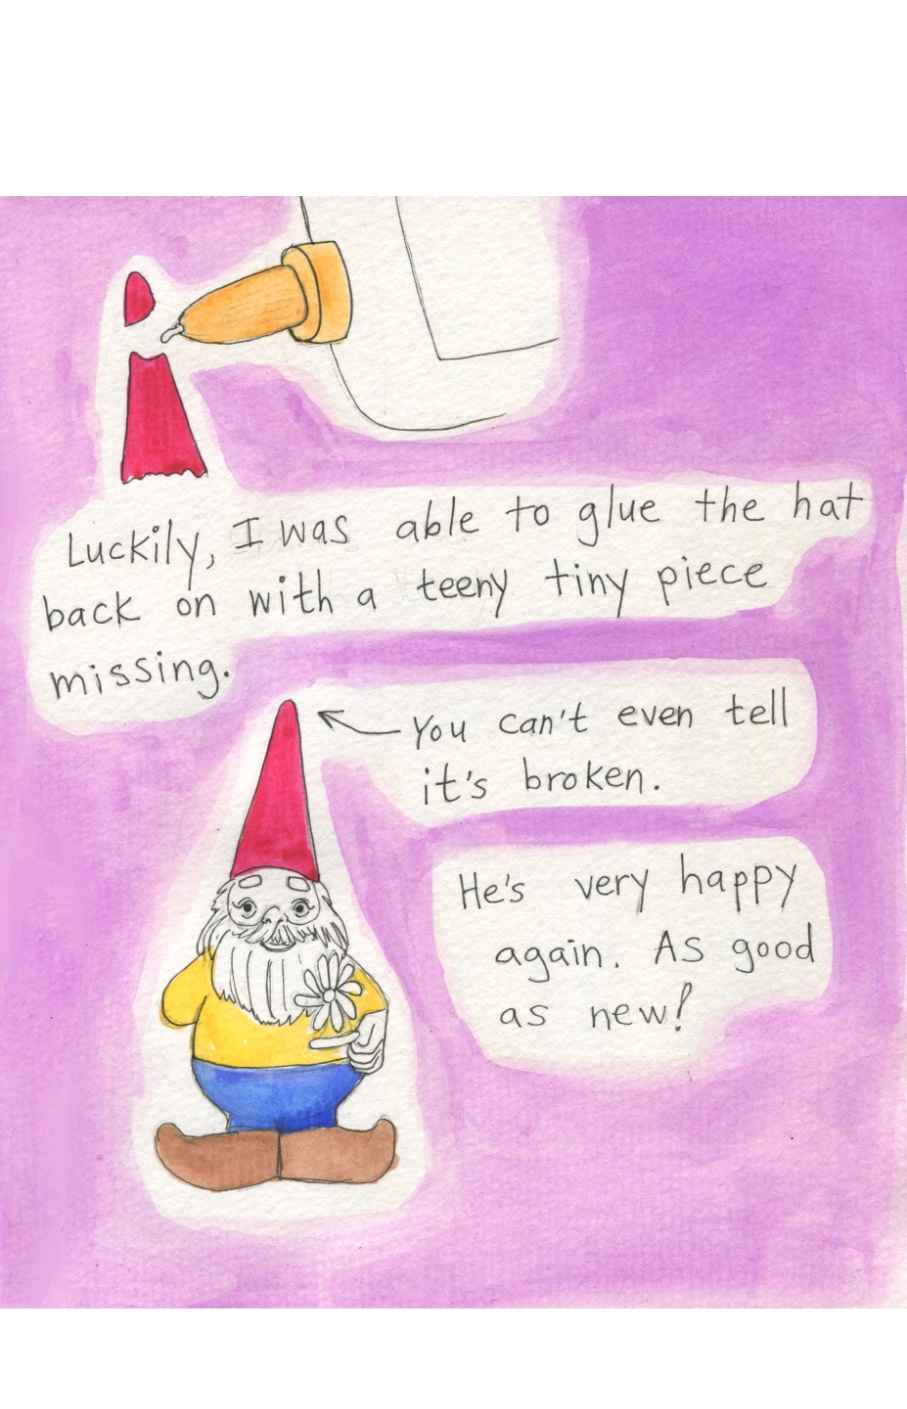 Luckily, I was able to glue the hat
back on with a teeny tiny piece
missing.
You can't even tell
it's broken.
He's very happy
again. As good
as new!